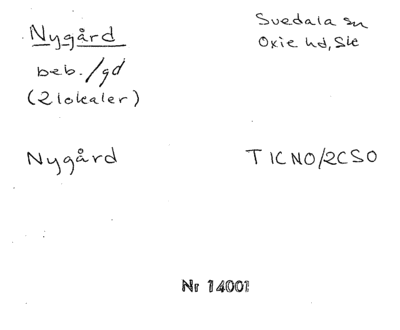 Nygård
Svedala sn
Oxie hd, Sk
beb./gd
(2 lokaler)
Nygård
T 1CNO/2CSO
Nr 14001